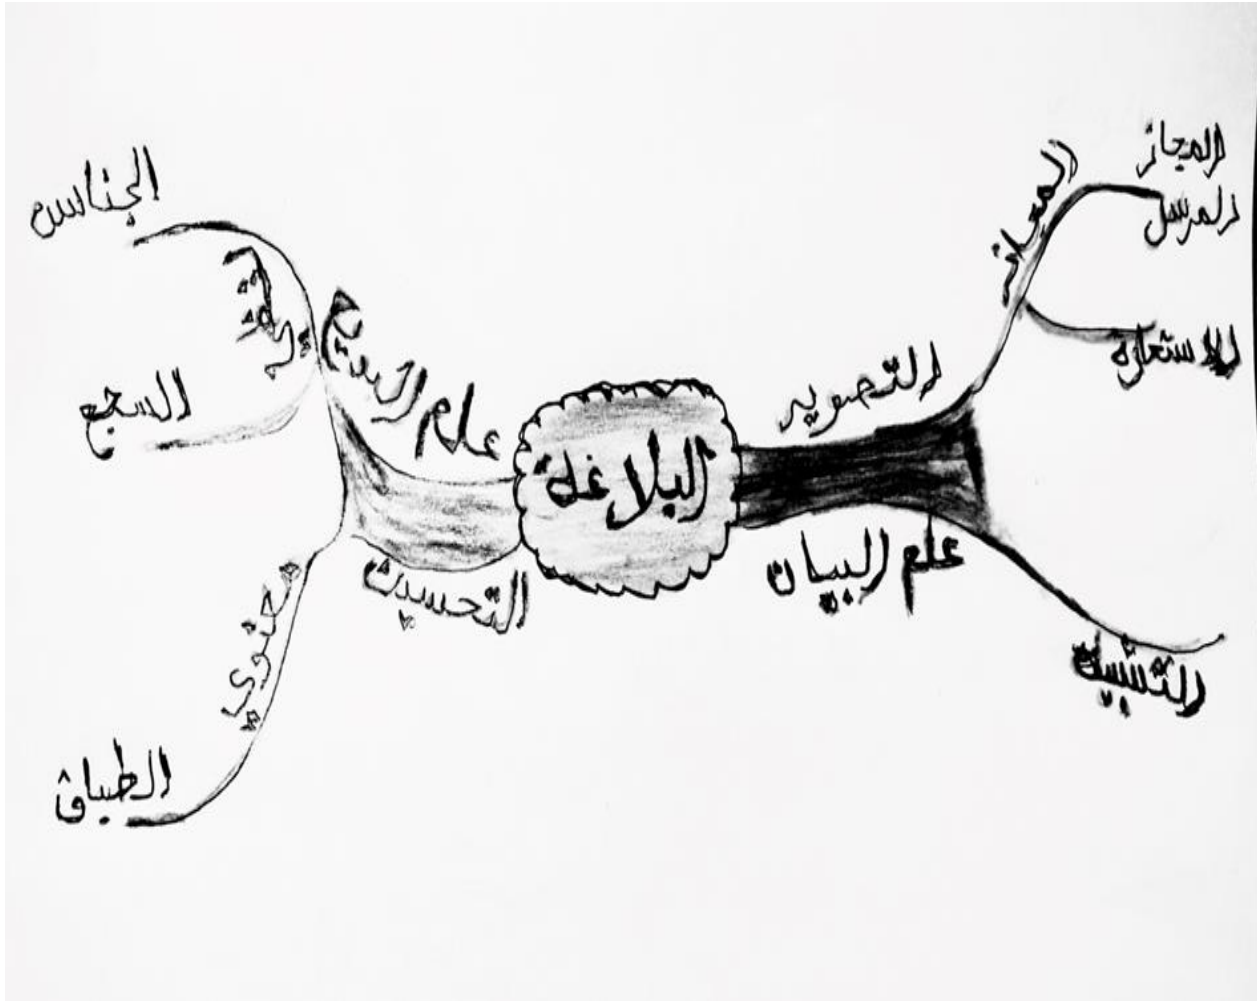 البلاغة
التصوير
علم البيان
المجاز
المجاز
المرسل
الاستعارة
التشبيه
علم البديع
التحسين
لفظي
الجناس
السجع
معنوي
الطباق